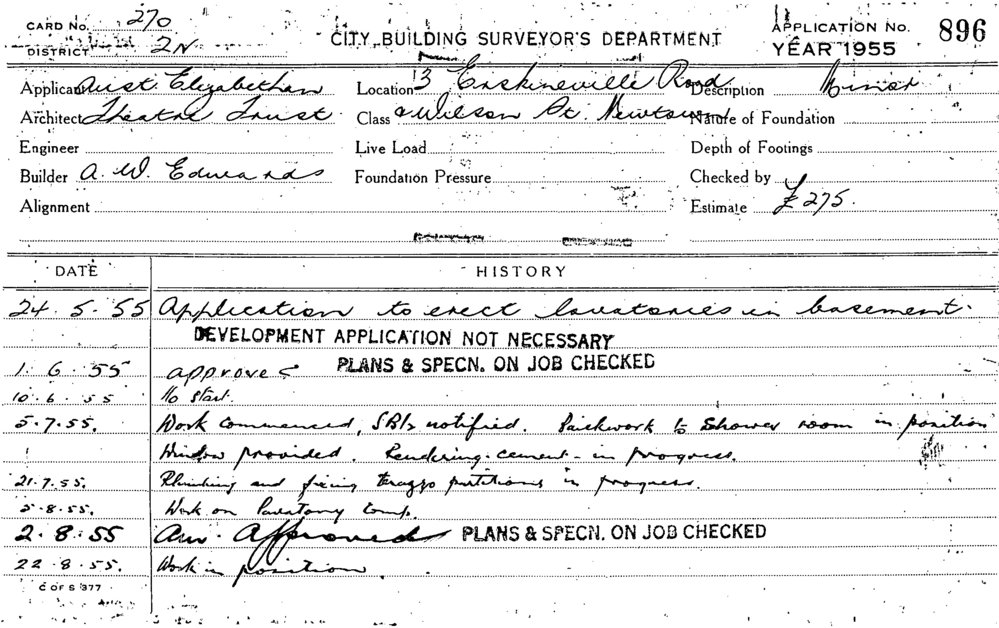 CARD No. 270
DISTRICT 2N
CITY BUILDING SURVEYOR'S DEPARTMENT
APPLICATION No. 896
YEAR 1955
Applicant Aust. Elizabethan Location 3 Erskineville Road Description Minor
Architect Theatre Trust Class & Wilson St. Newtown Nature of Foundation
Engineer Live Load Depth of Footings
Builder A. W. Edwards Foundation Pressure Checked by
Alignment Estimate £275.
DATE HISTORY
24.5.55 Application to erect lavatories in basement.
DEVELOPMENT APPLICATION NOT NECESSARY
1.6.55 approved PLANS & SPECN. ON JOB CHECKED
10.6.55 No start.
5.7.55. Work commenced, notified. Brickwork to shower room in position
Window provided. Rendering-cement-in progress.
21.7.55. Plumbing and fixing terazzo partitions in progress.
5.8.55. Work on lavatory comp.
2.8.55 Am. Approved PLANS & SPECN. ON JOB CHECKED
22.8.55. Work in position.
C OF S 377